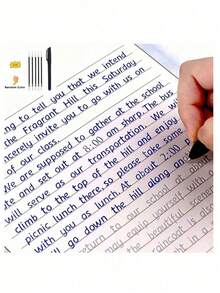 Random Color
ng to tell you that we intend
the Fragrant Hill this Saturday
ncerely invite you to go with us on
of our class.
We are supposed to gather at the school
te and set out at 8:00 am sharp. The bus
will serve as our transportation. We will
climb to the top of the hill and enjoy
picnic lunch there, so please take some
with you as lunch. At about 2:00 p
ll go down the hill along an
return to our school
may equip yourself with
the beautiful scenery
raincoat is also